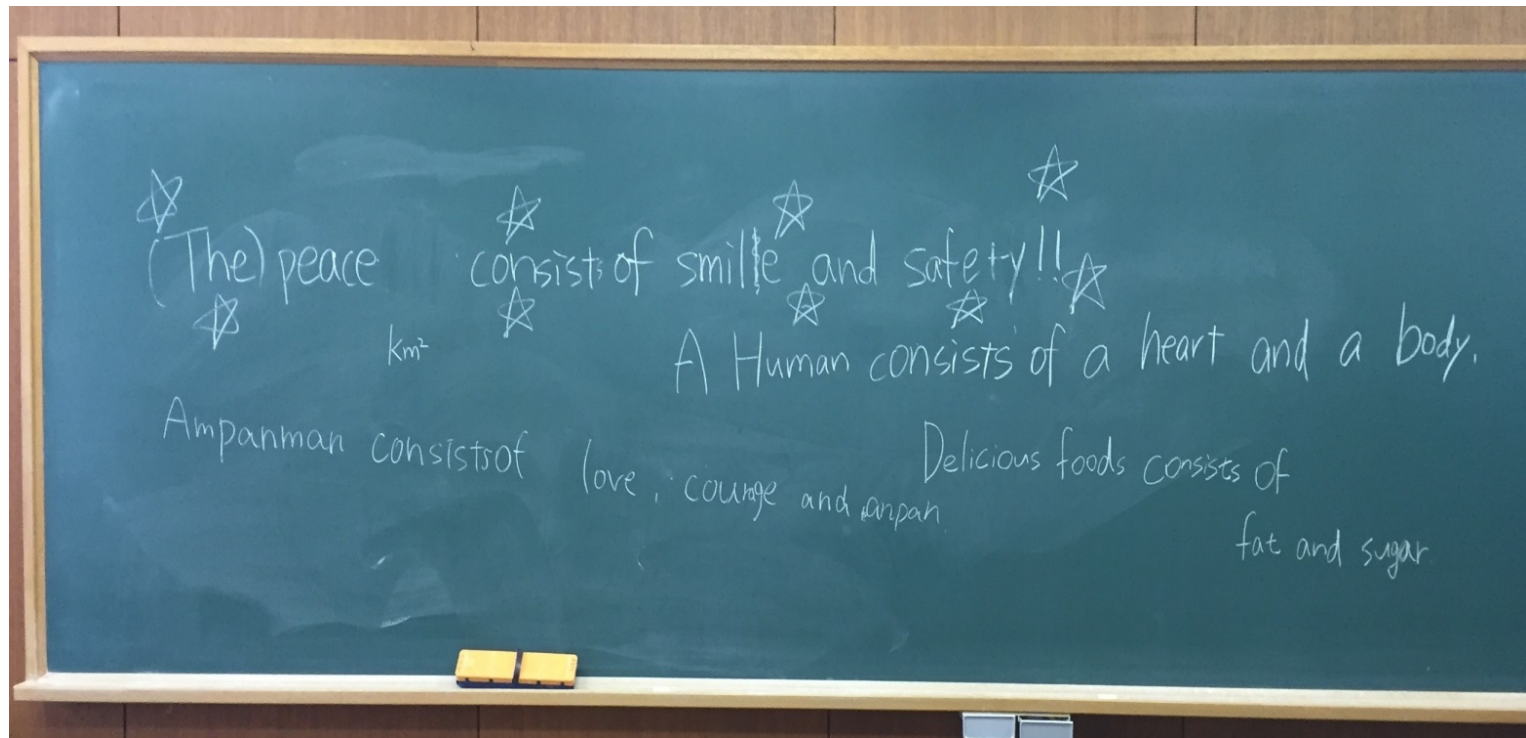 (The) peace consists of smile and safety!!
km²
A Human consists of a heart and a body.
Ampanman consists of love, courage and anpan
Delicious foods consists of
fat and sugar